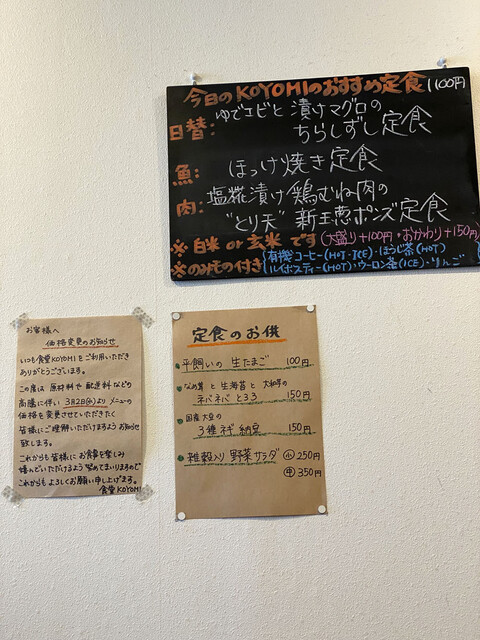 今日のKOYOMIのおすすめ定食 1100円
日替: ゆでエビと漬けマグロの
ちらしずし定食
魚: ほっけ焼き定食
肉: 塩糀漬け鶏むね肉の
"とり天" 新玉葱ポンズ定食
※白米 or 玄米 です (大盛り+100円・おかわり+150円)
※のみもの付き {有機コーヒー(HOT・ICE)・ほうじ茶(HOT)
ルイボスティー(HOT)・ウーロン茶(ICE)・りんご
お客様へ
価格変更のお知らせ
いつも食堂KOYOMIをご利用いただき
ありがとうございます。
この度は 原材料や配送料などの
高騰に伴い 3月2日(水)より メニューの
価格を変更させていただきたく
皆様にご理解いただけますようお知らせ
致します。
これからも皆様に お食事を楽しみ
喜んでいただけるよう 努めてまいりますので
これからも よろしくお願い申し上げます。
食堂 KOYOMI
定食のお供
平飼いの 生たまご 100円
なめ茸 と 生海苔 と 大和芋の
ネバネバ とろろ 150円
国産大豆の
3種ネギ 納豆 150円
雑穀入り 野菜サラダ (小)250円
(中)350円